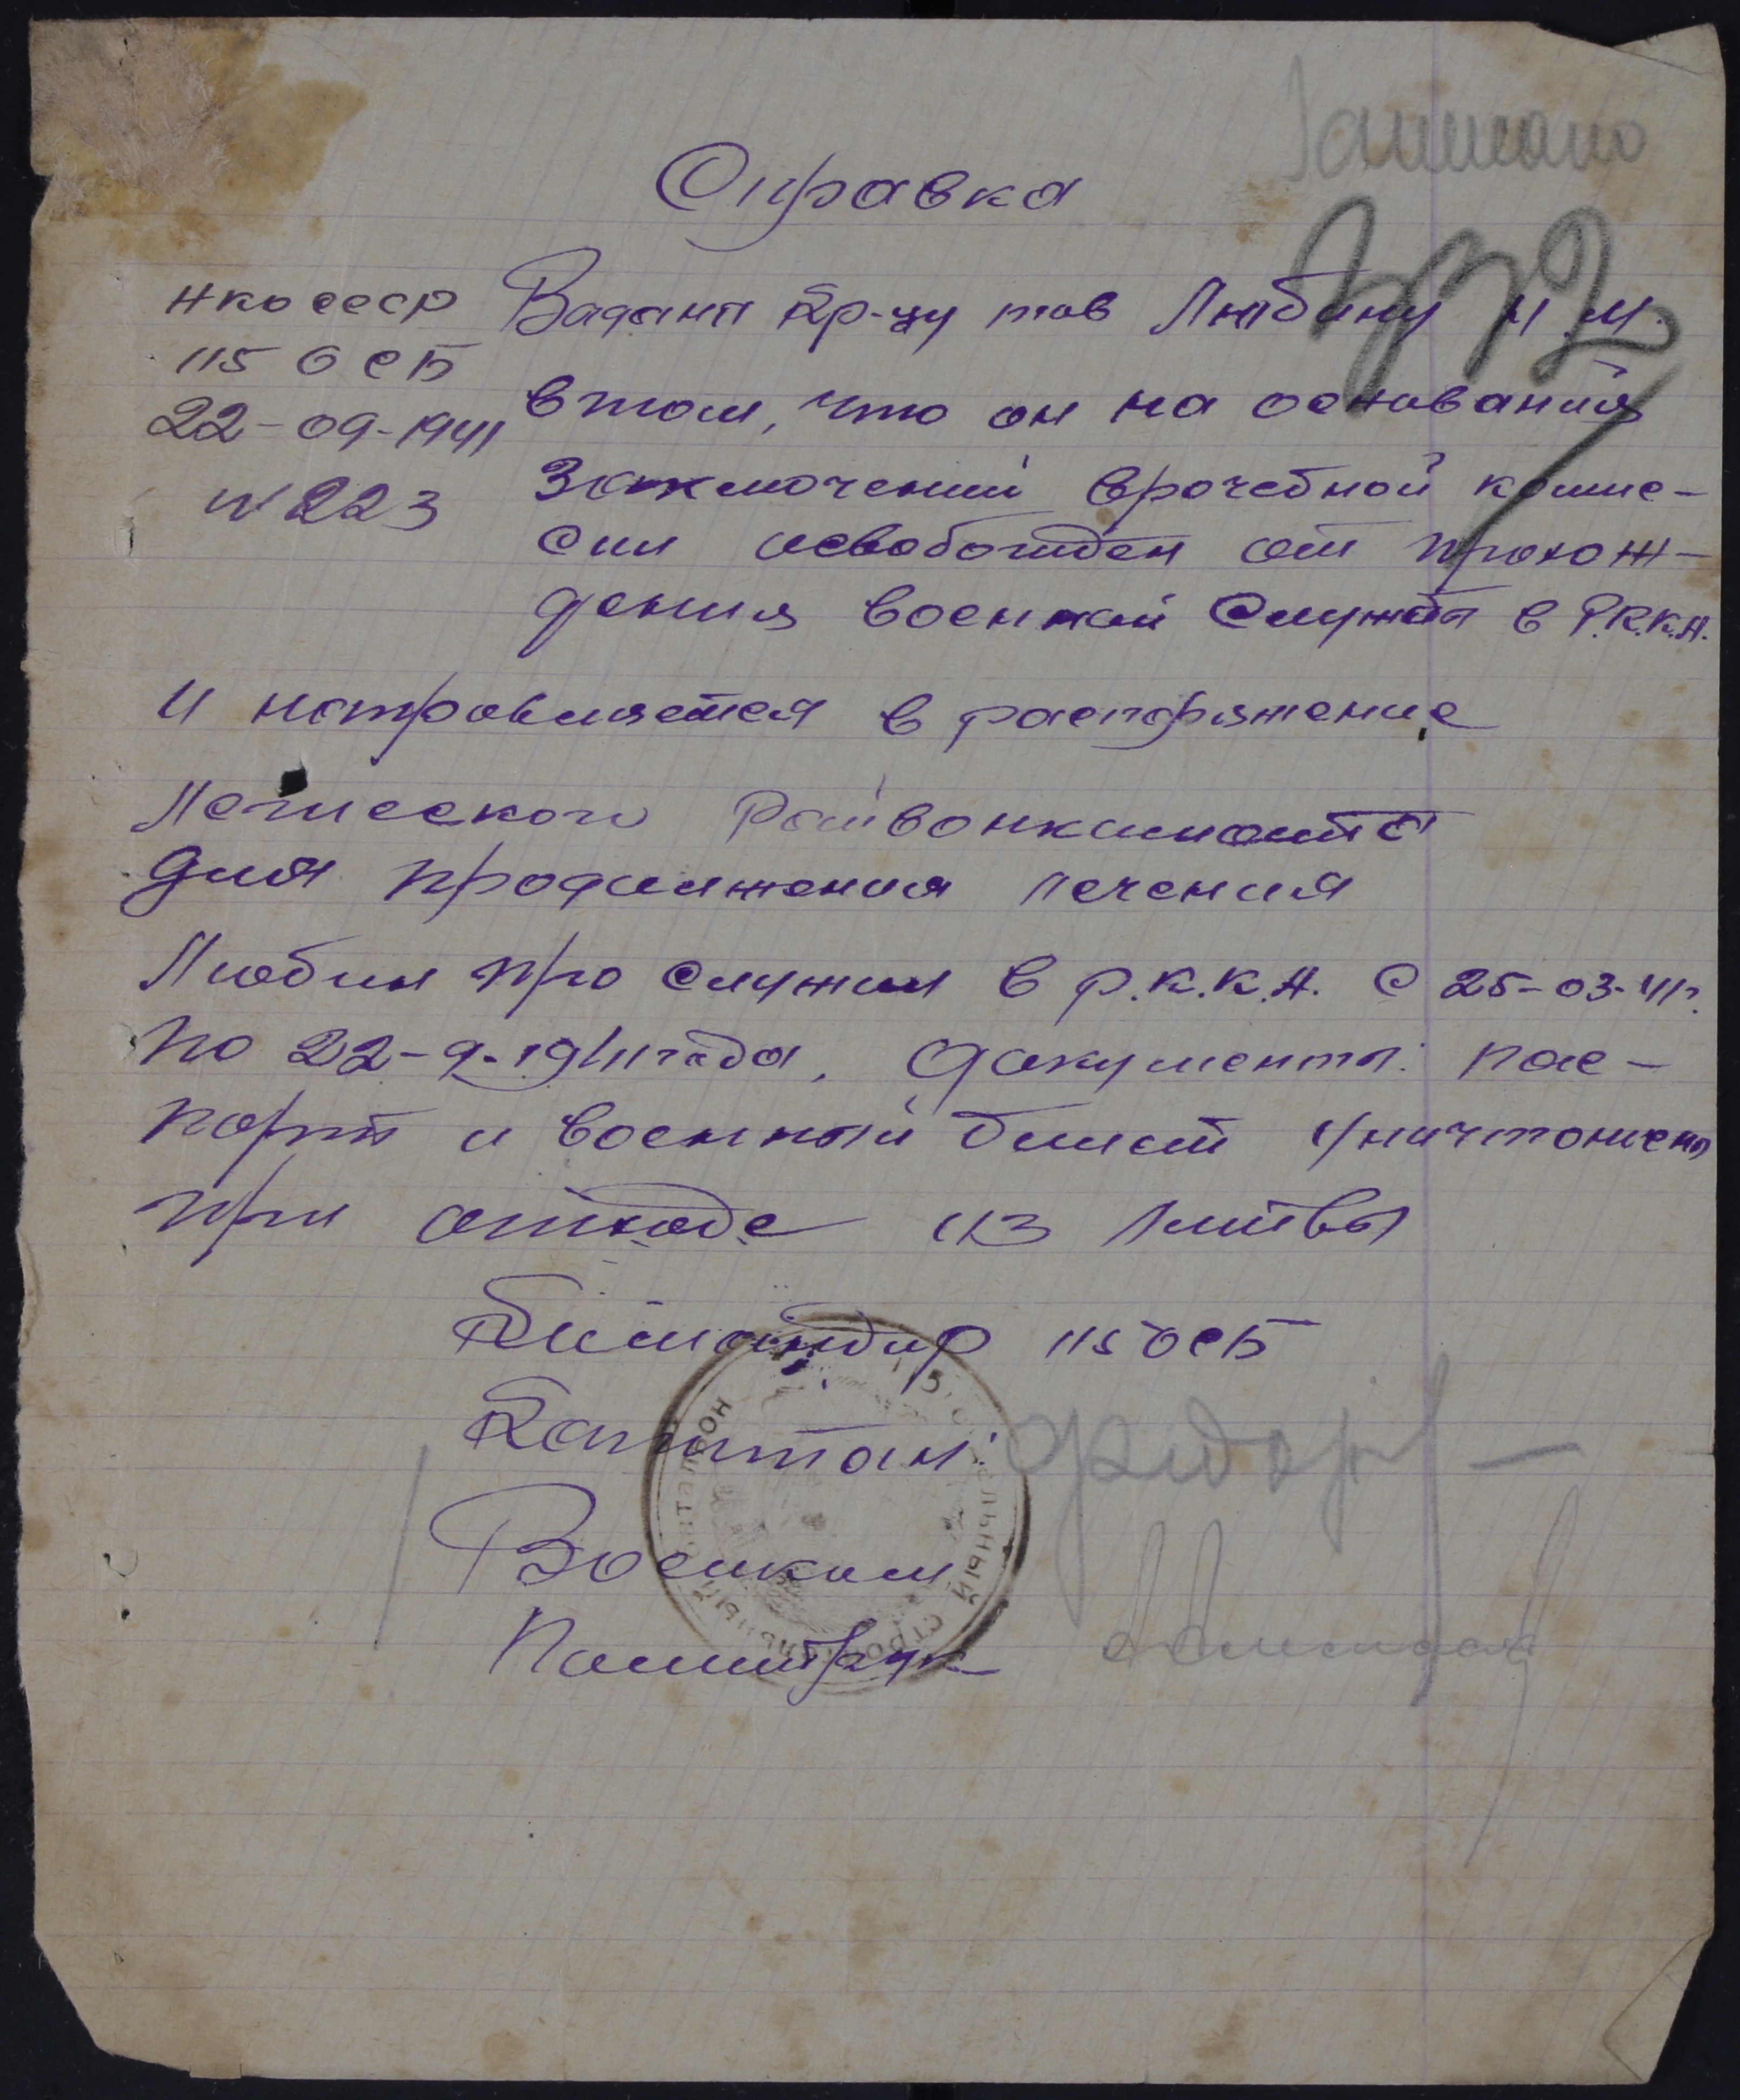 Записано
Справка
332
НКО СССР
115 ОСБ
22-09-1941
N 223
Выдана кр-цу тов Любину И.М.
в том, что он на основании
заключений врачебной комис-
сии освобожден от прохож-
дения военной службы в Р.К.К.А.
и направляется в распоряжение
Райвоенкомата
для продолжения лечения
Любин про служил в Р.К.К.А. с 25-03-41г.
по 22-9-1941 года, документы: пас-
порт и военный билет уничтожены
при отходе из Литвы
Командир 115 ОСБ
Капитан:
Военком
Политрук
СТРОИТЕЛЬНЫЙ БАТАЛЬОН